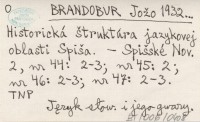 O
BRANDOBUR Jožo 1932...
Historická štruktúra jazykovej
oblasti Spiša. – Spišské Nov.
2, nr 44: 2-3; nr 45: 2;
nr 46: 2-3; nr 47: 2-3.
TNP
Język słow. i jego gwary.